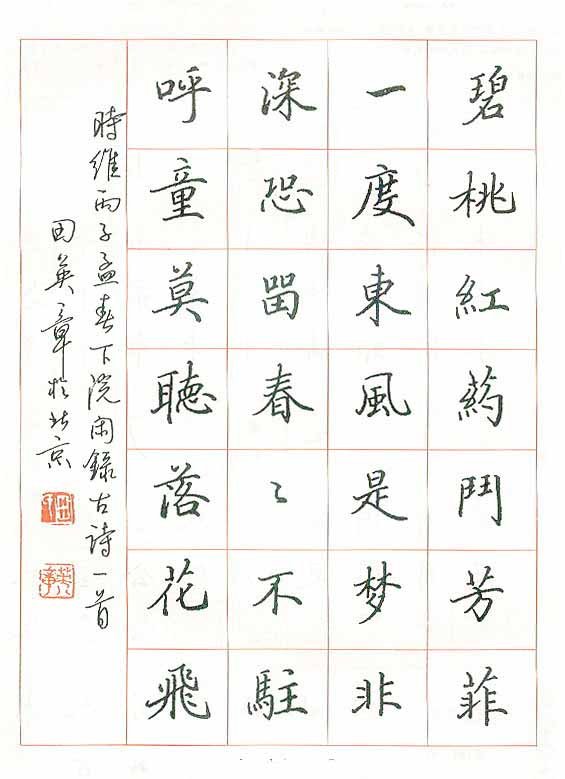 碧桃紅葯鬥芳菲
一度東風是梦非
深恐畱春〻不駐
呼童莫聽落花飛
時維丙子孟春下浣闲錄古詩一首
田英章於北京
田
英章